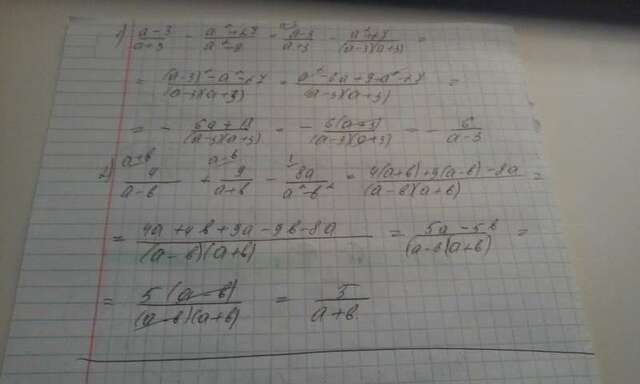 1) (a-3)/(a+3) - (a²+27)/(a²-9) = (a-3)/(a+3) - (a²+27)/((a-3)(a+3)) =
= ((a-3)²-a²-27)/((a-3)(a+3)) = (a²-6a+9-a²-27)/((a-3)(a+3)) =
= - (6a+18)/((a-3)(a+3)) = - 6(a+3)/((a-3)(a+3)) = - 6/(a-3)
2) 4/(a-b) + 9/(a+b) - 8a/(a²-b²) = (4(a+b)+9(a-b)-8a)/((a-b)(a+b)) =
= (4a+4b+9a-9b-8a)/((a-b)(a+b)) = (5a-5b)/((a-b)(a+b)) =
= 5(a-b)/((a-b)(a+b)) = 5/(a+b)